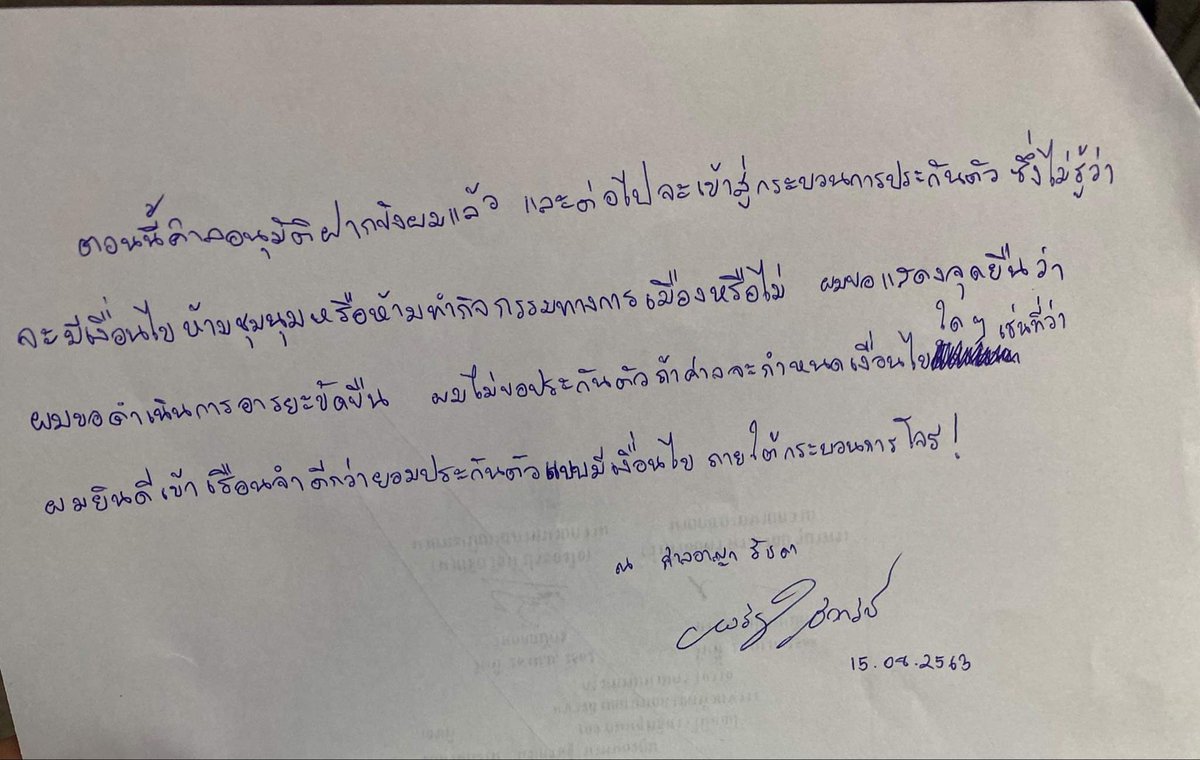 ตอนนี้ศาลอนุมัติฝากขังผมแล้ว และต่อไปจะเข้าสู่กระบวนการประกันตัว ซึ่งไม่รู้ว่า
จะมีเงื่อนไขห้ามชุมนุมหรือห้ามทำกิจกรรมทางการเมืองหรือไม่ ผมขอแสดงจุดยืนว่า
ผมขอดำเนินการอารยะขัดขืน ผมไม่ขอประกันตัวถ้าศาลจะกำหนดเงื่อนไขใดๆ เช่นที่ว่า
ผมยินดีเข้าเรือนจำดีกว่ายอมประกันตัวแบบมีเงื่อนไข ภายใต้กระบวนการโจร!
ณ ศาลอาญา รัชดา
15.08.2563